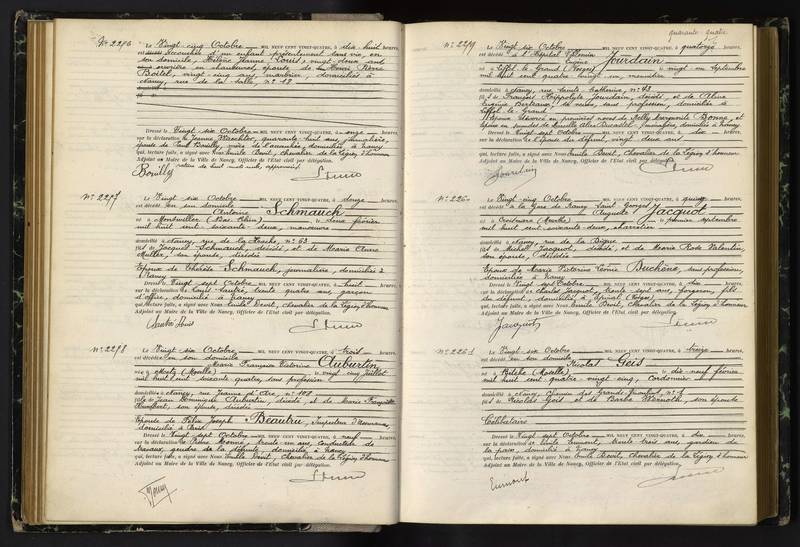 N° 2276
Le Vingt-cinq Octobre mil neuf cent vingt-quatre, à dix-huit heures,
est accouchée d'un enfant présentement sans vie, en
son domicile, Hélène Jeanne Louis, vingt-deux ans
ouvrière en chaussures, épouse de Henri Pierre
Boitel, vingt-cinq ans, marbrier, domiciliés à
Nancy, rue de la Salle, n° 18
Dressé le Vingt-six Octobre mil neuf cent vingt-quatre, à onze heures,
sur la déclaration de Jeanne quarante-huit ans, journalière,
épouse de Paul Bouilly, domiciliée à Nancy
qui, lecture faite, a signé avec Nous, Emile Chevalier de la Légion d'honneur
Adjoint au Maire de la Ville de Nancy, Officier de l'Etat civil par délégation.
Bouilly
N° 2277
Le Vingt-six Octobre mil neuf cent vingt-quatre, à douze heures,
est décédé en son domicile
Antoine Schmauch
né à (Bas-Rhin) le deux février
mil huit cent soixante-deux, manœuvre
domicilié à Nancy, rue de la n° 63
fils de Jacques Schmauch, décédé, et de Marie Anne
Muller, son épouse, décédée
Epoux de Thérèse Schmauch, journalière, domiciliée à
Nancy
Dressé le Vingt-sept Octobre mil neuf cent vingt-quatre, à huit heures,
sur la déclaration de Louis trente-quatre ans, garçon
d'office, domicilié à Nancy
qui, lecture faite, a signé avec Nous, Emile Chevalier de la Légion d'honneur
Adjoint au Maire de la Ville de Nancy, Officier de l'Etat civil par délégation.
N° 2278
Le Vingt-six Octobre mil neuf cent vingt-quatre, à trois heures,
est décédée en son domicile
Marie Françoise Victorine Aubertin
née à Metz (Moselle) le vingt-cinq juillet
mil huit cent soixante-quatre, sans profession
domiciliée à Nancy, rue Jeanne d'Arc, n° 109
fille de Jean Dominique Aubertin, décédé, et de Marie Françoise
Humbert, son épouse, décédée
Epouse de Félix Joseph Beautru,
domicilié à Nancy
Dressé le Vingt-sept Octobre mil neuf cent vingt-quatre, à neuf heures,
sur la déclaration de trente-un ans, conducteur de
travaux, gendre de la défunte, domicilié à Nancy
qui, lecture faite, a signé avec Nous, Emile Chevalier de la Légion d'honneur
Adjoint au Maire de la Ville de Nancy, Officier de l'Etat civil par délégation.
quarante-quatre
N° 2279
Le Vingt-six Octobre mil neuf cent vingt-quatre, à quatorze heures,
est décédé à l'Hôpital
Eugène Jourdain
né à Liffol-le-Grand (Vosges) le vingt-un septembre
mil huit cent quatre-vingt-un, menuisier
domicilié à Nancy, rue Sainte Catherine, n° 93
fils de François Hippolyte Jourdain, décédé, et de
Eugénie sa veuve, sans profession, domiciliée à
Liffol-le-Grand
Epoux divorcé en premières noces de Nelly Marguerite et
époux en domiciliée à Nancy
Dressé le Vingt-sept Octobre mil neuf cent vingt-quatre, à dix heures,
sur la déclaration de l'épouse du défunt, vingt-deux ans
qui, lecture faite, a signé avec Nous, Emile Chevalier de la Légion d'honneur
Adjoint au Maire de la Ville de Nancy, Officier de l'Etat civil par délégation.
Jourdain
N° 2280
Le Vingt-cinq Octobre mil neuf cent vingt-quatre, à quinze heures,
est décédé à la Gare de Nancy Saint Georges
Auguste Jacquot
né à (Meurthe) le premier septembre
mil huit cent soixante-deux, charretier
domicilié à Nancy, rue de la Digue
fils de Michel Jacquot, décédé, et de Marie Rose Valentin,
son épouse, décédée
Epoux de Marie Victorine Léonie Buchène, sans profession,
domiciliée à Nancy
Dressé le Vingt-sept Octobre mil neuf cent vingt-quatre, à dix heures,
sur la déclaration de Charles Jacquot, trente-sept ans, forgeron, fils
du défunt, domicilié à Epinal (Vosges)
qui, lecture faite, a signé avec Nous, Emile Chevalier de la Légion d'honneur
Adjoint au Maire de la Ville de Nancy, Officier de l'Etat civil par délégation.
Jacquot
N° 2281
Le Vingt-six Octobre mil neuf cent vingt-quatre, à treize heures,
est décédé en son domicile
Nicolas Geis
né à Bitche (Moselle) le dix-neuf février
mil huit cent quatre-vingt-cinq, cordonnier
domicilié à Nancy, Chemin des Grands n° 1
fils de Nicolas Geis et de Barbe son épouse
Célibataire
Dressé le Vingt-sept Octobre mil neuf cent vingt-quatre, à dix heures,
sur la déclaration de trente-trois ans, gardien de
la paix, domicilié à Nancy
qui, lecture faite, a signé avec Nous, Emile Chevalier de la Légion d'honneur
Adjoint au Maire de la Ville de Nancy, Officier de l'Etat civil par délégation.